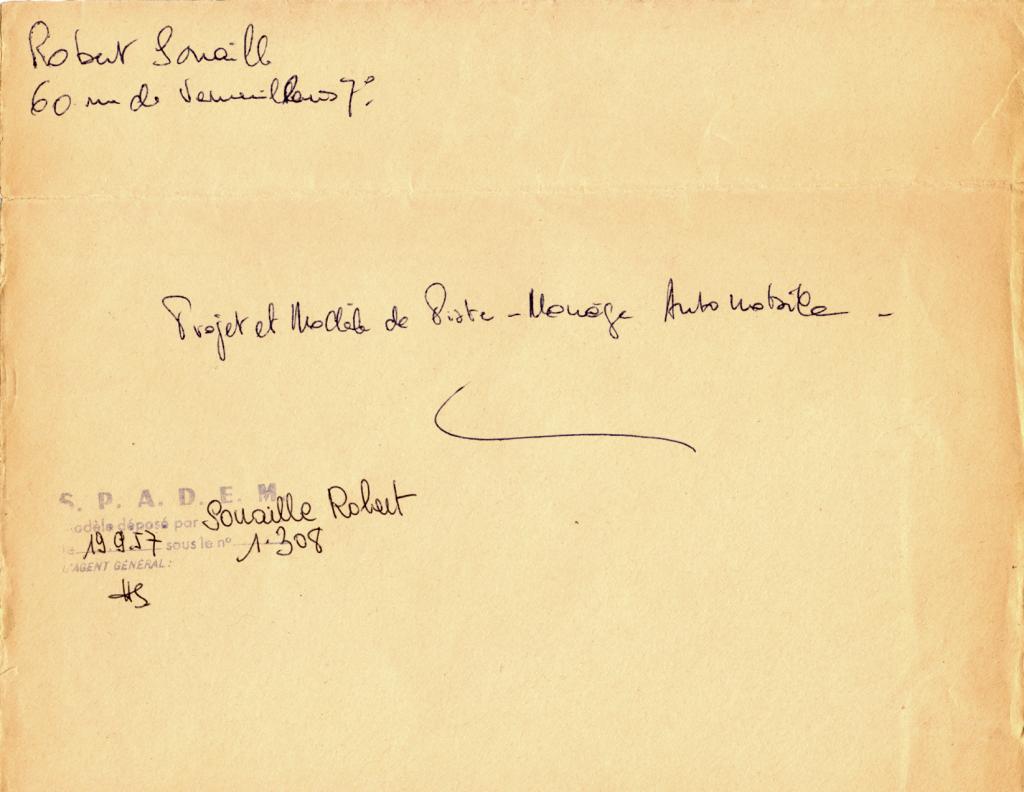 Robert Souaille
60 rue de Verneuil Paris 7e
Projet et Modèle de Piste - Manège Automobile -
S. P. A. D. E. M.
Modèle déposé par Souaille Robert
le 19.9.57 sous le n° 1.308
L'AGENT GÉNÉRAL :
HS